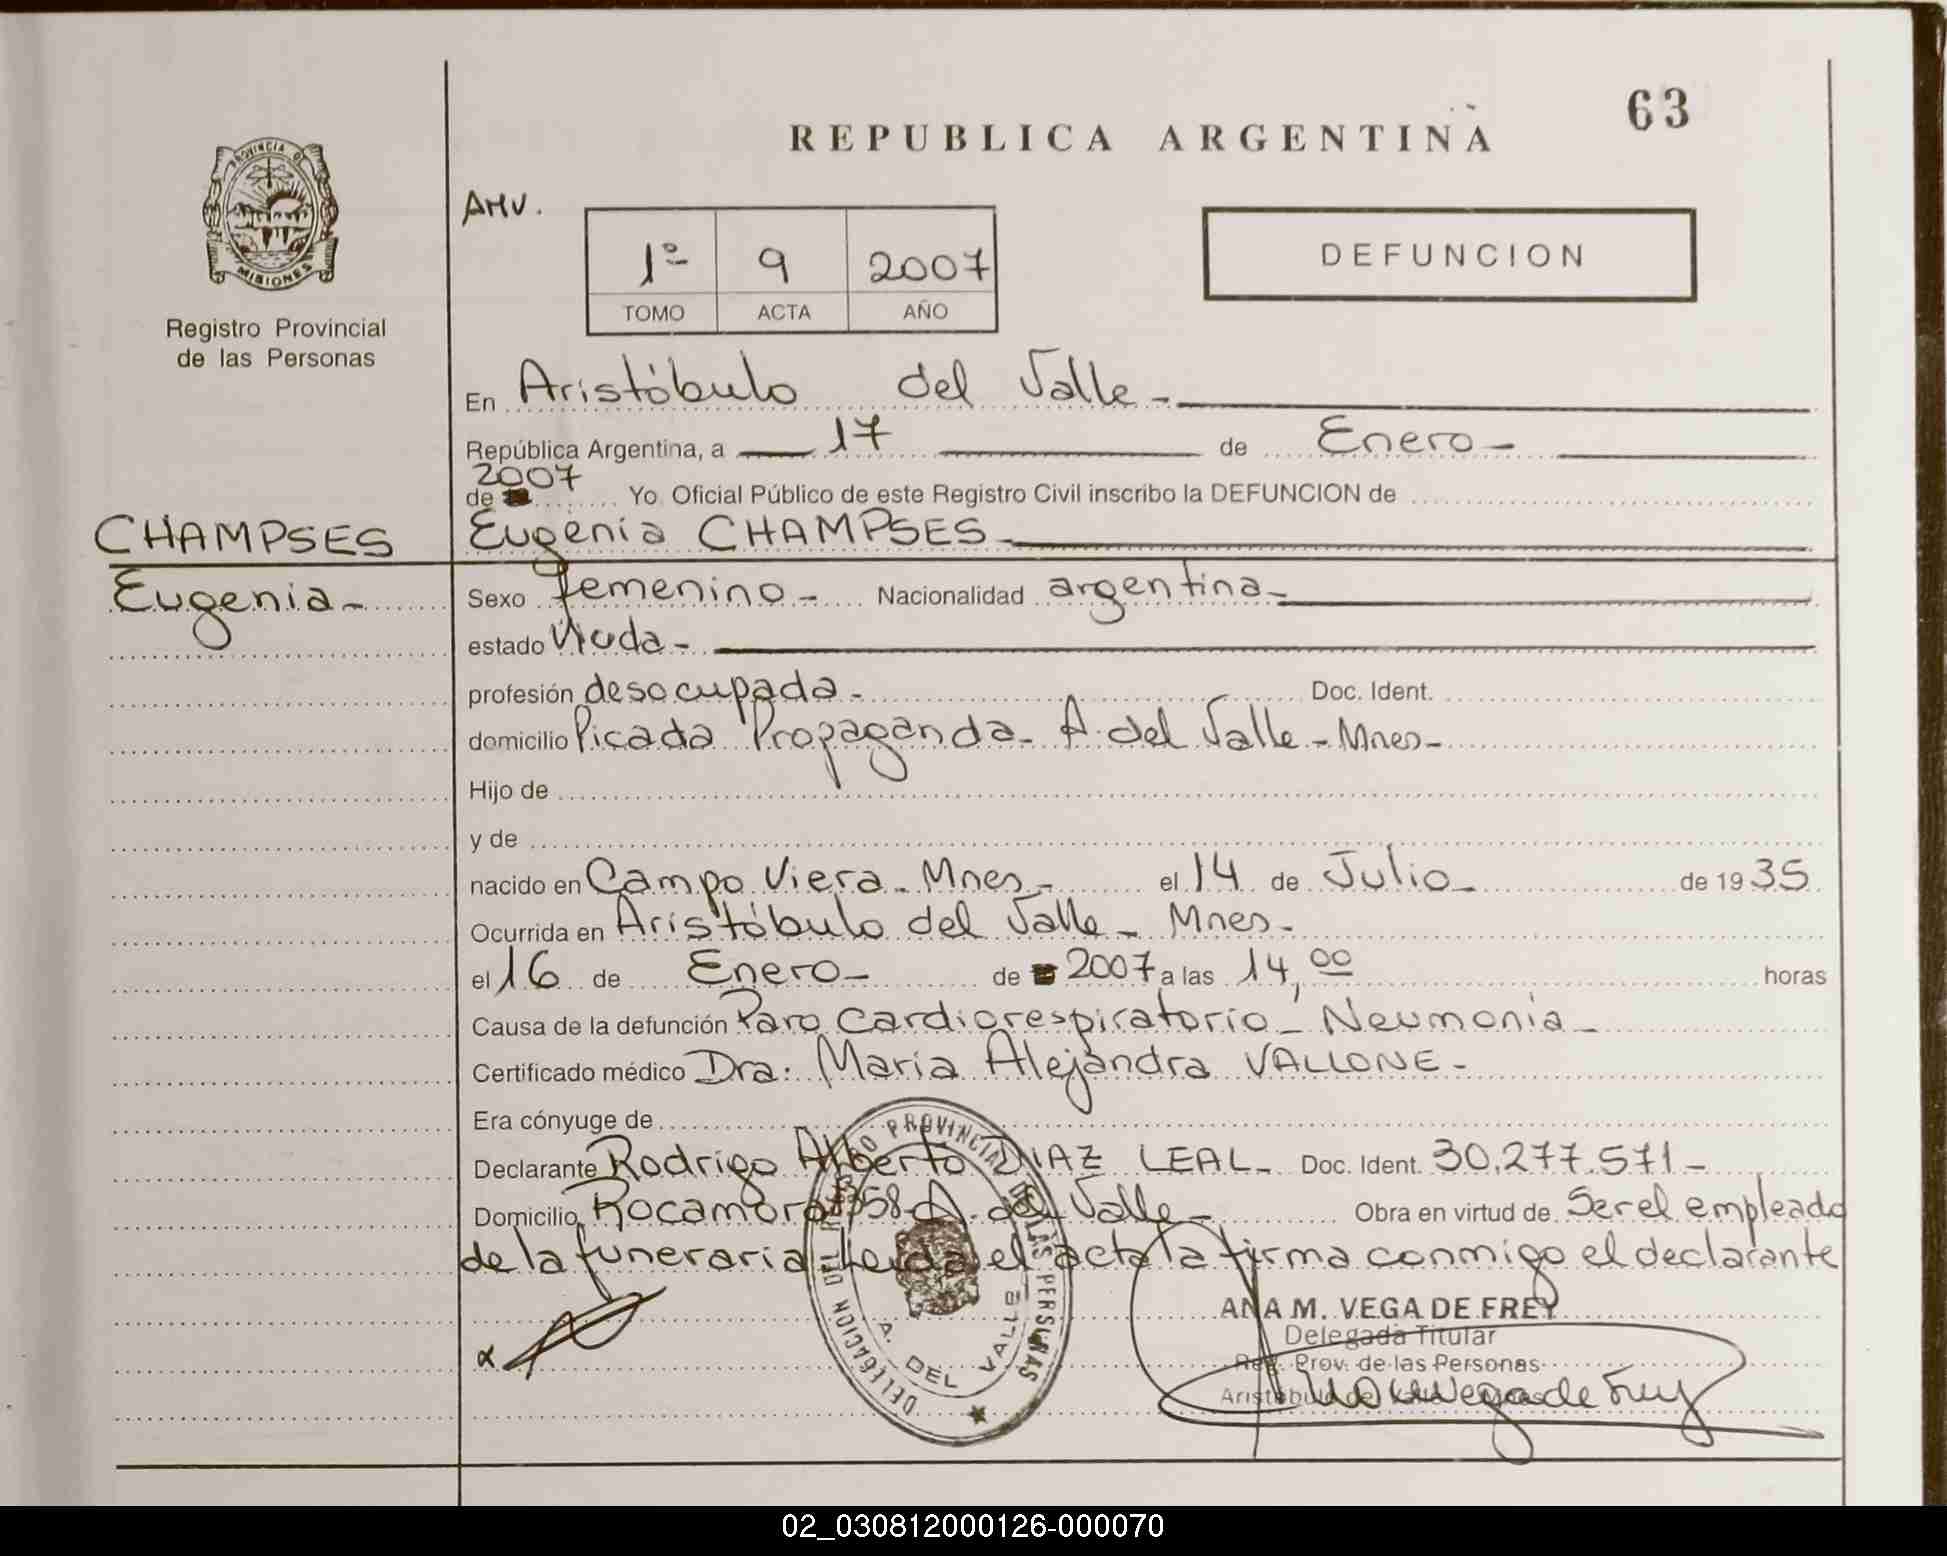 63
REPUBLICA ARGENTINA
PROVINCIA DE
MISIONES
Registro Provincial
de las Personas
AHV.
1º 9 2007
TOMO ACTA AÑO
DEFUNCION
En Aristóbulo del Valle -
República Argentina, a 17 de Enero -
2007
de Yo Oficial Público de este Registro Civil inscribo la DEFUNCION de
CHAMPSES Eugenia CHAMPSES -
Eugenia - Sexo femenino - Nacionalidad argentina -
estado Viuda -
profesión desocupada - Doc. Ident.
domicilio Picada Propaganda - A. del Valle - Mnes -
Hijo de
y de
nacido en Campo Viera - Mnes - el 14 de Julio - de 1935
Ocurrida en Aristóbulo del Valle - Mnes -
el 16 de Enero - de 2007 a las 14,00 horas
Causa de la defunción Paro Cardiorespiratorio - Neumonia -
Certificado médico Dra: María Alejandra VALLONE -
Era cónyuge de
Declarante Rodrigo Alberto DIAZ LEAL - Doc. Ident. 30.277.571 -
Domicilio Rocamora 358 - A. del Valle - Obra en virtud de Ser el empleado
de la funeraria Leida el acta la firma conmigo el declarante
DELEGACION DEL REGISTRO PROVINCIAL DE LAS PERSONAS
A. DEL VALLE
ANA M. VEGA DE FREY
Delegada Titular
Reg. Prov. de las Personas
Aristóbulo del Valle
Vega de Frey
02_030812000126-000070